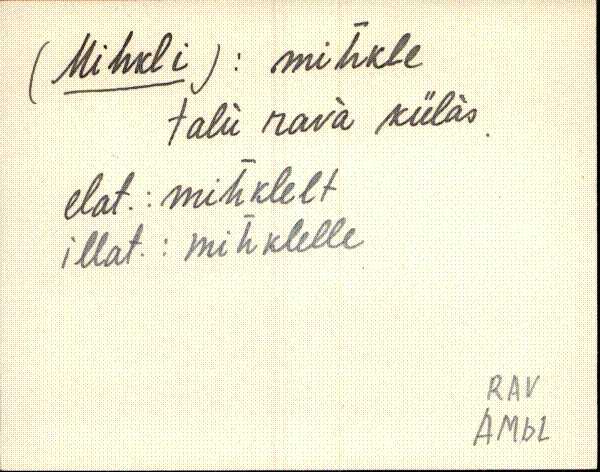 (Mihkli): mih̄kle
talù ravà küläs.
elat.: mih̄klelt
illat.: mih̄klelle
RAV
AMbL